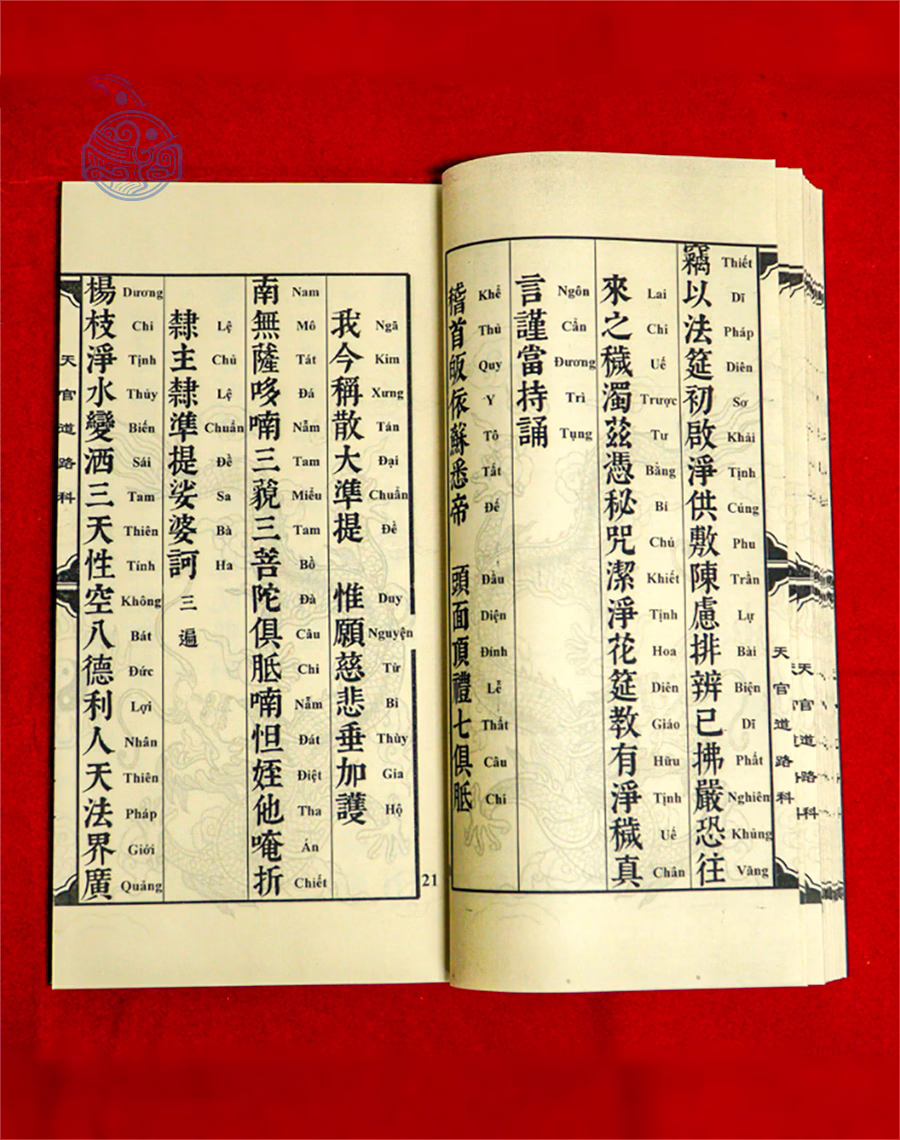 竊以法筵初啟淨供敷陳慮排辨已拂嚴恐往
Thiết Dĩ Pháp Diên Sơ Khải Tịnh Cúng Phu Trần Lự Bài Biện Dĩ Phất Nghiên Khủng Vãng
來之穢濁茲憑秘咒潔淨花筵教有淨穢真
Lai Chi Uế Trược Tư Bằng Bí Chú Khiết Tịnh Hoa Diên Giáo Hữu Tịnh Uế Chân
言謹當持誦
Ngôn Cẩn Đương Trì Tụng
稽首皈依蘇悉帝 頭面頂禮七俱胝
Khể Thủ Quy Y Tô Tất Đế Đầu Diện Đính Lễ Thất Câu Chi
天官道路科
天官道路科
21
我今稱散大準提 惟願慈悲垂加護
Ngã Kim Xưng Tán Đại Chuẩn Đề Duy Nguyện Từ Bi Thùy Gia Hộ
南無薩哆喃三藐三菩陀俱胝喃怛姪他唵折
Nam Mô Tát Đá Nẵm Tam Miểu Tam Bồ Đà Câu Chi Nẵm Đát Điệt Tha Án Chiết
隸主隸準提娑婆訶三遍
Lệ Chủ Lệ Chuẩn Đề Sa Bà Ha
楊枝淨水變洒三天性空八德利人天法界廣
Dương Chi Tịnh Thủy Biến Sái Tam Thiên Tính Không Bát Đức Lợi Nhân Thiên Pháp Giới Quảng
天官道路科